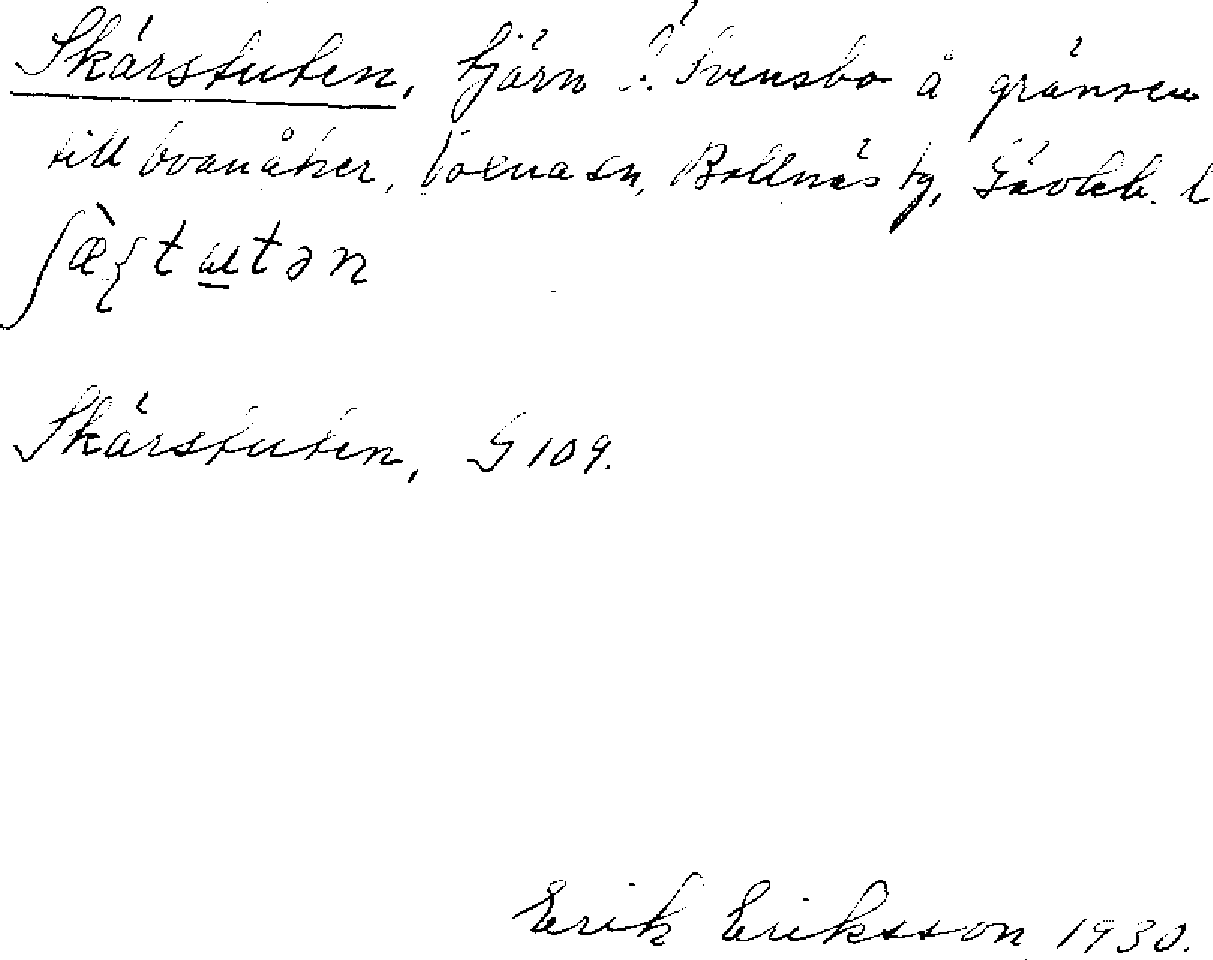 Skärstuten, tjärn Svensbo å gränsen
till Ovanåker, Voxna sn, Bollnäs tg, Gävleb. l
ʃæ̀ʂtɯtən
Skärstuten, G 109.
Erik Eriksson 1930.